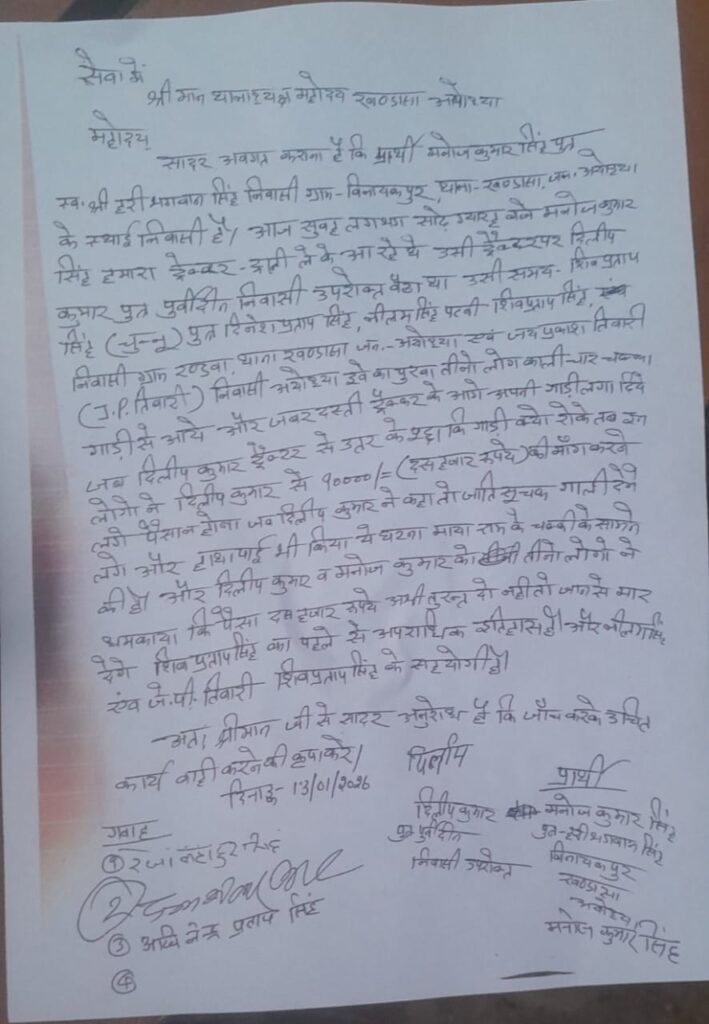 सेवा में
श्रीमान थानाध्यक्ष महोदय खण्डासा अयोध्या
महोदय,
सादर अवगत कराना है कि प्रार्थी मनोज कुमार सिंह पुत्र
स्व. श्री हरी भगवान सिंह निवासी ग्राम-विनायकपुर, थाना-खण्डासा, जन. अयोध्या
के स्थाई निवासी है। आज सुबह लगभग साढ़े ग्यारह बजे मनोज कुमार
सिंह हमारा ट्रैक्टर-ट्राली लेके आ रहे थे उसी ट्रैक्टर पर दिलीप
कुमार पुत्र पुर्वीदीन निवासी उपरोक्त बैठा था उसी समय- शिव प्रताप
सिंह (चुन्नू) पुत्र दिनेश प्रताप सिंह, नीलम सिंह पत्नी शिवप्रताप सिंह,
निवासी ग्राम रण्डवा, थाना खण्डासा जन.-अयोध्या एवं जय प्रकाश तिवारी
(J.P. तिवारी) निवासी अयोध्या दुबे का पुरवा तीनो लोग काली चार चक्का
गाड़ी से आये और जबरदस्ती ट्रैक्टर के आगे अपनी गाड़ी लगा दिये
जब दिलीप कुमार ट्रैक्टर से उतर के पूछा कि गाडी क्यो रोके तब इन
लोगो ने दिलीप कुमार से 10000/= (दस हजार रूपये) की माँग करने
लगे पैसा न होना जब दिलीप कुमार ने कहा तो जाति सूचक गाली देने
लगे और हाथापाई भी किया ये घटना माया राम के चक्की के सामने
की है। और दिलीप कुमार व मनोज कुमार को तीनो लोगो ने
धमकाया कि पैसा दस हजार रूपये अभी तुरन्त दो नही तो जान से मार
देगे शिव प्रताप सिंह का पहले से अपराधिक इतिहास है। और नीलम सिंह
एंव जे.पी. तिवारी शिवप्रताप सिंह के सहयोगी है।
अतः श्रीमान जी से सादर अनुरोध है कि जाँच करके उचित
कार्य वाही करने की कृपा करे।
दिनाङ्क- 13/01/2026
दिलीप
दिलीप कुमार
पुत्र पुर्वीदीन
निवासी उपरोक्त
प्रार्थी
मनोज कुमार सिंह
पुत्र-हरी भगवान सिंह
विनायकपुर
खण्डासा
अयोध्या
मनोज कुमार सिंह
गवाह
① रजा बहादुर सिंह
②
③ अखिलेन्द्र प्रताप सिंह
④